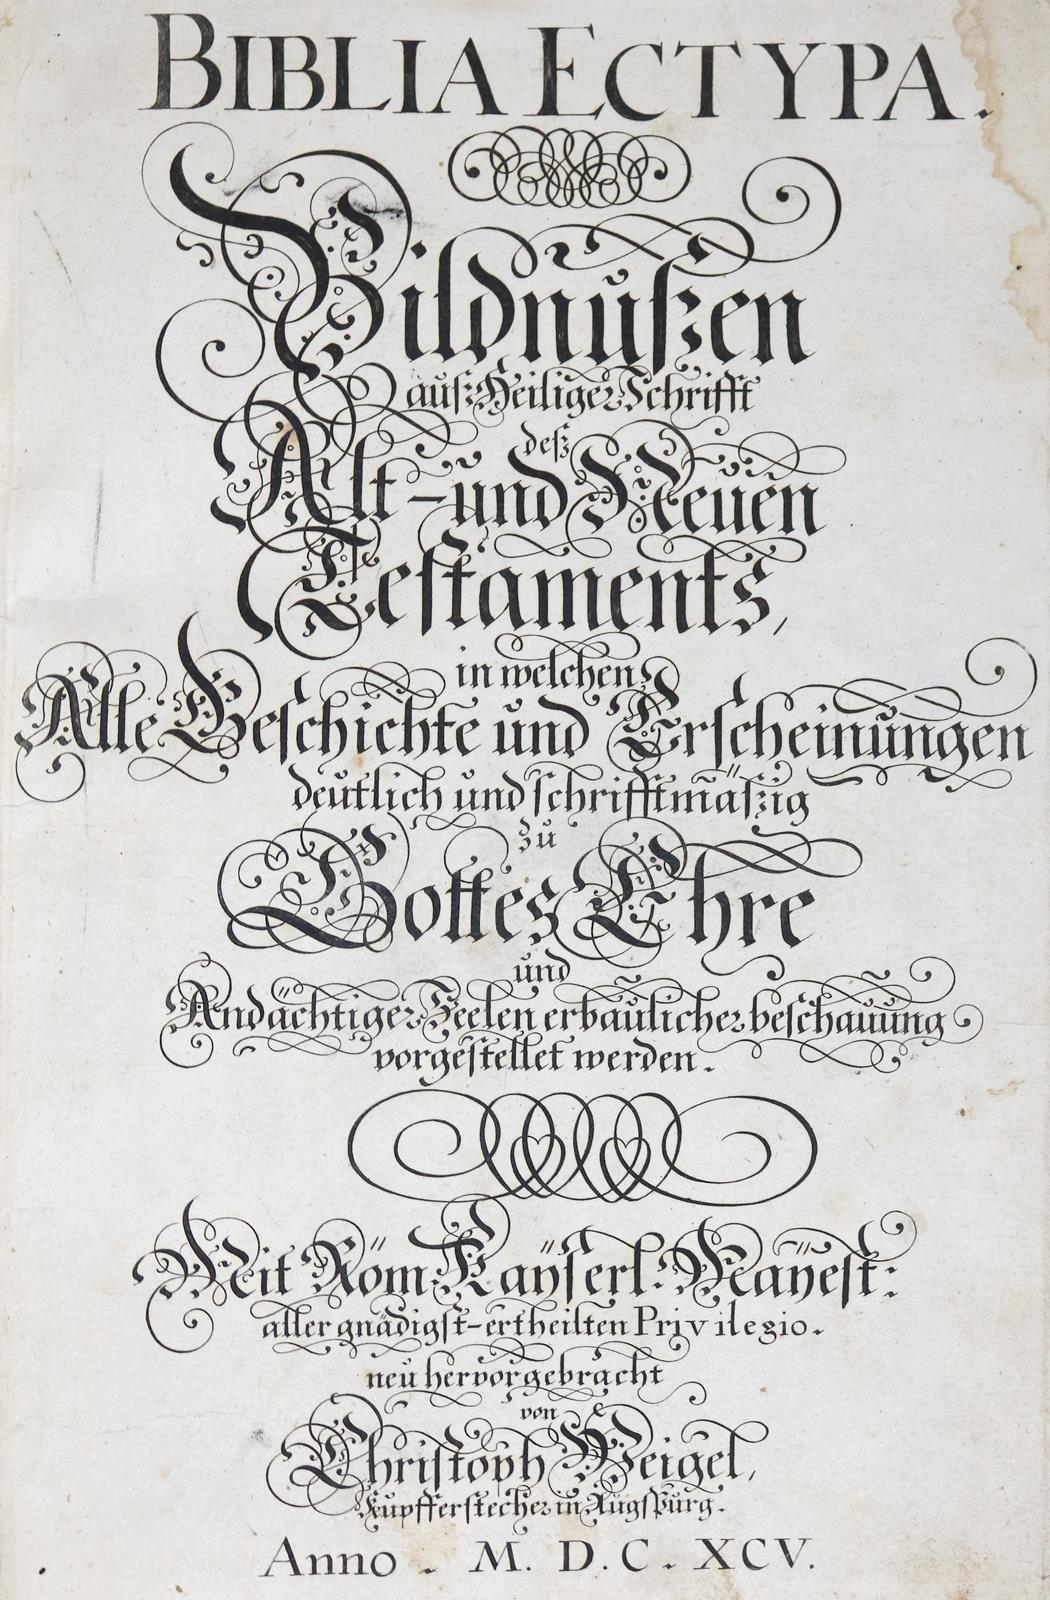 BIBLIA ECTYPA.
Bildnußen
auß Heiliger Schrifft
deß
Alt- und Neuen
Testaments,
in welchen
Alle Geschichte und Erscheinungen
deutlich und schrifftmäßig
zu
Gottes Ehre
und
Andächtiger Seelen erbaulicher beschauung
vorgestellet werden.
Mit Röm Kaÿserl: Maÿest:
aller gnädigst-ertheilten Privilegio.
neu hervorgebracht
von
Christoph Weigel,
Kupfferstecher in Augspurg.
Anno. M. D. C. XCV.